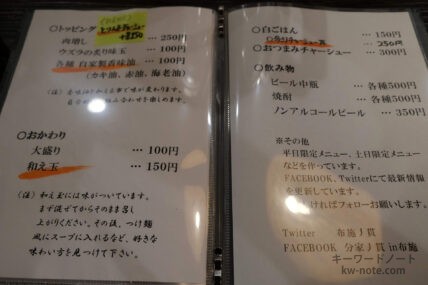 ○トッピング
肉増し … 250円
ウズラの炙り味玉 … 100円
各種 自家製香味油 … 100円
(カキ油、赤油、海老油)
○おかわり
大盛り … 100円
和え玉 … 150円
(注) 和え玉には味がついています。
まず混ぜてからそのまま召し
上がりください。その後、つけ麺
風にスープに入れるなど、好きな
味わい方を見つけて下さい。
○白ごはん … 150円
250円
○おつまみチャーシュー … 300円
○飲み物
ビール中瓶 … 各種500円
焼酎 … 各種500円
ノンアルコールビール … 350円
※その他
平日限定メニュー、土日限定メニュー
などを作っています。
FACEBOOK、Twitterにて最新情報
を更新しています。
ければフォローお願いします。
Twitter 布施丿貫
FACEBOOK 分家丿貫 in布施
キーワードノート
kw-note.com